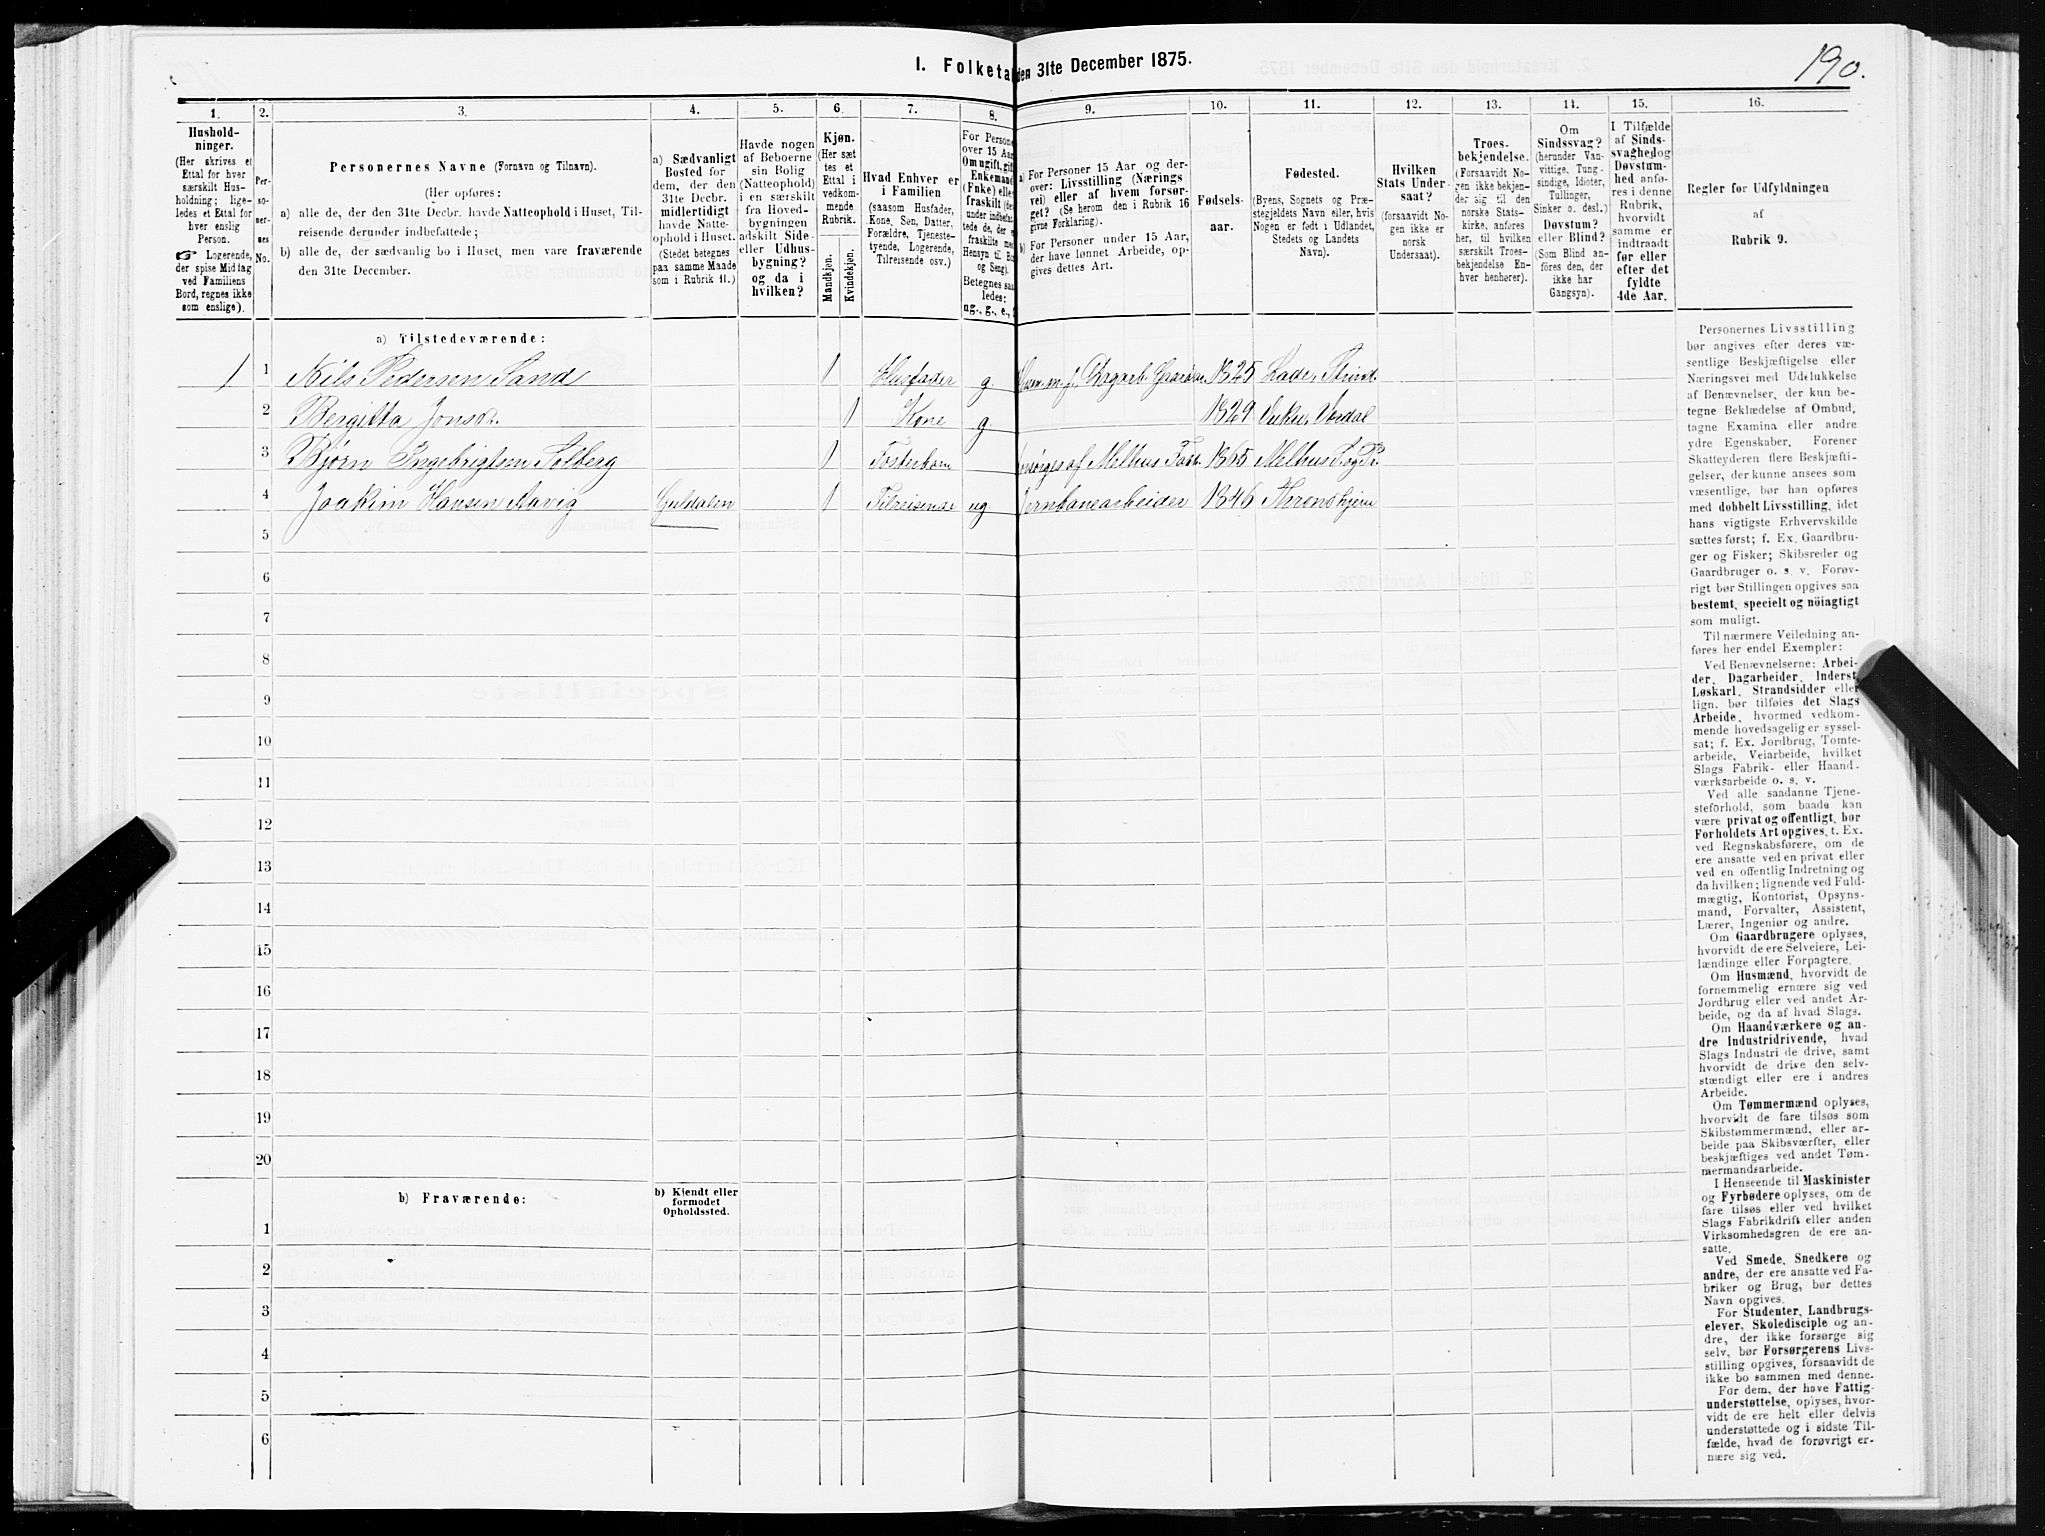 I. Folketal den 31te December 1875.
190.
1.
2.
3.
4.
5.
6.
7.
8.
9.
10.
11.
12.
13.
14.
15.
16.
Hushold-
ninger.
(Her skrives et
Ettal for hver
særskilt Hus-
holdning; lige-
ledes et Ettal for
hver enslig
Person.
☞ Logerende,
der spise Middag
ved Familiens
Bord, regnes ikke
som enslige).
Per-
so-
ner-
nes
No.
Personernes Navne (Fornavn og Tilnavn).
(Her opføres:
a) alle de, der den 31te Decbr. havde Natteophold i Huset, Til-
reisende derunder indbefattede;
b) alle de, der sædvanlig bo i Huset, men vare fraværende
den 31te December.
a) Sædvanligt
Bosted for
dem, der den
31te Decbr.
midlertidigt
havde Natte-
ophold i Huset.
(Stedet betegnes
paa samme Maade
som i Rubrik 11.)
Havde nogen
af Beboerne
sin Bolig
(Natteophold)
i en særskilt
fra Hoved-
bygningen
adskilt Side-
eller Udhus-
bygning?
og da i
hvilken?
Kjøn.
(Her sæt
tes et
Ettal i
vedkom-
mende
Rubrik.
Mandkjøn.
Kvindekjøn.
Hvad Enhver er
i Familien
(saasom Husfader,
Kone, Søn, Datter,
Forældre, Tjeneste-
tyende, Logerende,
Tilreisende osv.)
For Persone
over 15 Aar
Om ugift, gif
Enkemand
(Fnke) elle
fraskilt (de
under indbefat
tede de, der e
fraskilte me
Hensyn til Bo
og Seng).
Betegnes saa
ledes:
ug., g., e.,
a) For Personer 15 Aar og der-
over: Livsstilling (Nærings
vei) eller af hvem forsør-
get? (Se herom den i Rubrik 16
givne Forklaring).
b) For Personer under 15 Aar,
der have lønnet Arbeide, op-
gives dettes Art.
Fødsels-
aar.
Fødested.
(Byens, Sognets og Præ-
stegjeldets Navn eller, hvis
Nogen er født i Udlandet,
Stedets og Landets
Navn).
Hvilken
Stats Under-
saat?
(forsaavidt No-
gen ikke er
norsk
Undersaat).
Troes-
bekjendelse.
(Forsaavidt No-
gen ikke bekjen-
der sig til den
norske Stats-
kirke, anføres
her, til hvilken
særskilt Troes-
bekjendelse En-
hver henhører).
Om
Sindssvag?
(herunder Van-
vittige, Tung-
sindige, Idioter,
Tullinger,
Sinker o. desl.)
Døvstum?
eller Blind?
(Som Blind an-
føres den, der
ikke har
Gangsyn).
I Tilfælde
af Sinds-
svaghed og
Døvstum-
hed anfø-
res i denne
Rubrik,
hvorvidt
samme er
indtraadt
før eller
efter det
fyldte
4de Aar.
Regler for Udfyldningen
af
Rubrik 9.
a) Tilstedeværende:
1 1 Nils Pedersen Sand 1 Husfader g Husm. m. J. Dagarb. Gaardsar. 1825 Lade, Strind.
2 Bergitta Jonsd. 1 Kone g 1829 Vuku, Værdal
3 Bjørn Ingebrigtsen Solberg 1 Fosterbarn forsørges af Melhus Fatt. 1865 Melhus S. og P.
4 Joakim Hansen Aavig Guldalen 1 Tilreisende ug Jernbanearbeider 1846 Throndhjem
5
6
7
8
9
10
11
12
13
14
15
16
17
18
19
20
b) Fraværende:
b) Kjendt eller
formodet
Opholdssted.
1
2
3
4
5
6
Personernes Livsstilling
bør angives efter deres væ-
sentlige Beskjæftigelse eller
Næringsvei med Udelukkelse
af Benævnelser, der kun be-
tegne Beklædelse af Ombud,
tagne Examina eller andre
ydre Egenskaber. Forener
Skatteyderen flere Beskjæfti-
gelser, der kunne ansees som
væsentlige, bør han opføres
med dobbelt Livsstilling, idet
hans vigtigste Erhvervskilde
sættes først; f. Ex. Gaardbru-
ger og Fisker; Skibsreder og
Gaardbruger o. s. v. Forøv-
rigt bør Stillingen opgives saa
bestemt, specielt og nöiagtigt
som muligt.
Til nærmere Veiledning an-
føres her endel Exempler:
Ved Benævnelserne: Arbei-
der, Dagarbeider, Inderst,
Løskarl, Strandsidder eller
lign. bør tilføies det Slags
Arbeide, hvormed vedkom-
mende hovedsagelig er syssel-
sat; f. Ex. Jordbrug, Tomte-
arbeide, Veiarbeide, hvilket
Slags Fabrik- eller Haand-
værksarbeide o. s. v.
Ved alle saadanne Tjene-
steforhold, som baade kan
være privat og offentligt, bør
Forholdets Art opgives, t. Ex.
ved Regnskabsførere, om de
ere ansatte ved en privat eller
ved en offentlig Indretning og
da hvilken; lignende ved Fuld-
mægtig, Kontorist, Opsyns-
mand, Forvalter, Assistent,
Lærer, Ingeniør og andre.
Om Gaardbrugere oplyses,
hvorvidt de ere Selveiere, Lei-
lændinge eller Forpagtere.
Om Husmænd, hvorvidt de
fornemmelig ernære sig ved
Jordbrug eller ved andet Ar-
beide, og da af hvad Slags.
Om Haandværkere og an-
dre Industridrivende, hvad
Slags Industri de drive, samt
hvorvidt de drive den selv-
stændigt eller ere i andres
Arbeide.
Om Tømmermænd oplyses,
hvorvidt de fare tilsøs som
Skibstømmermænd, eller ar-
beide paa Skibsværfter, eller
beskjæftiges ved andet Tøm-
mermandsarbeide.
I Henseende til Maskinister
og Fyrbødere oplyses, om de
fare tilsøs eller ved hvilket
Slags Fabrikdrift eller anden
Virksomhedsgren de ere an-
satte.
Ved Smede, Snedkere og
andre, der ere ansatte ved Fa-
briker og Brug, bør dettes
Navn opgives.
For Studenter, Landbrugs-
elever, Skoledisciple og an-
dre, der ikke forsørge sig
selv, bør Forsørgerens Livs-
stilling opgives, forsaavidt de
ikke bo sammen med denne.
For dem, der have Fattig-
understøttelse, oplyses, hvor-
vidt de ere helt eller delvis
understøttede og i sidste Til-
fælde, hvad de forøvrigt er-
nære sig ved.